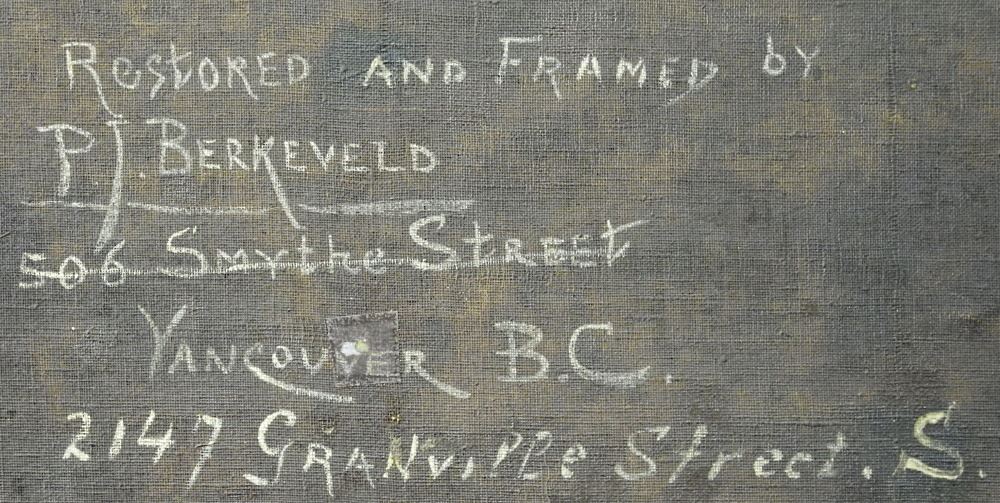 Restored and Framed by
P.J. Berkeveld
506 Smythe Street
Vancouver B.C.
2147 Granville Street. S.